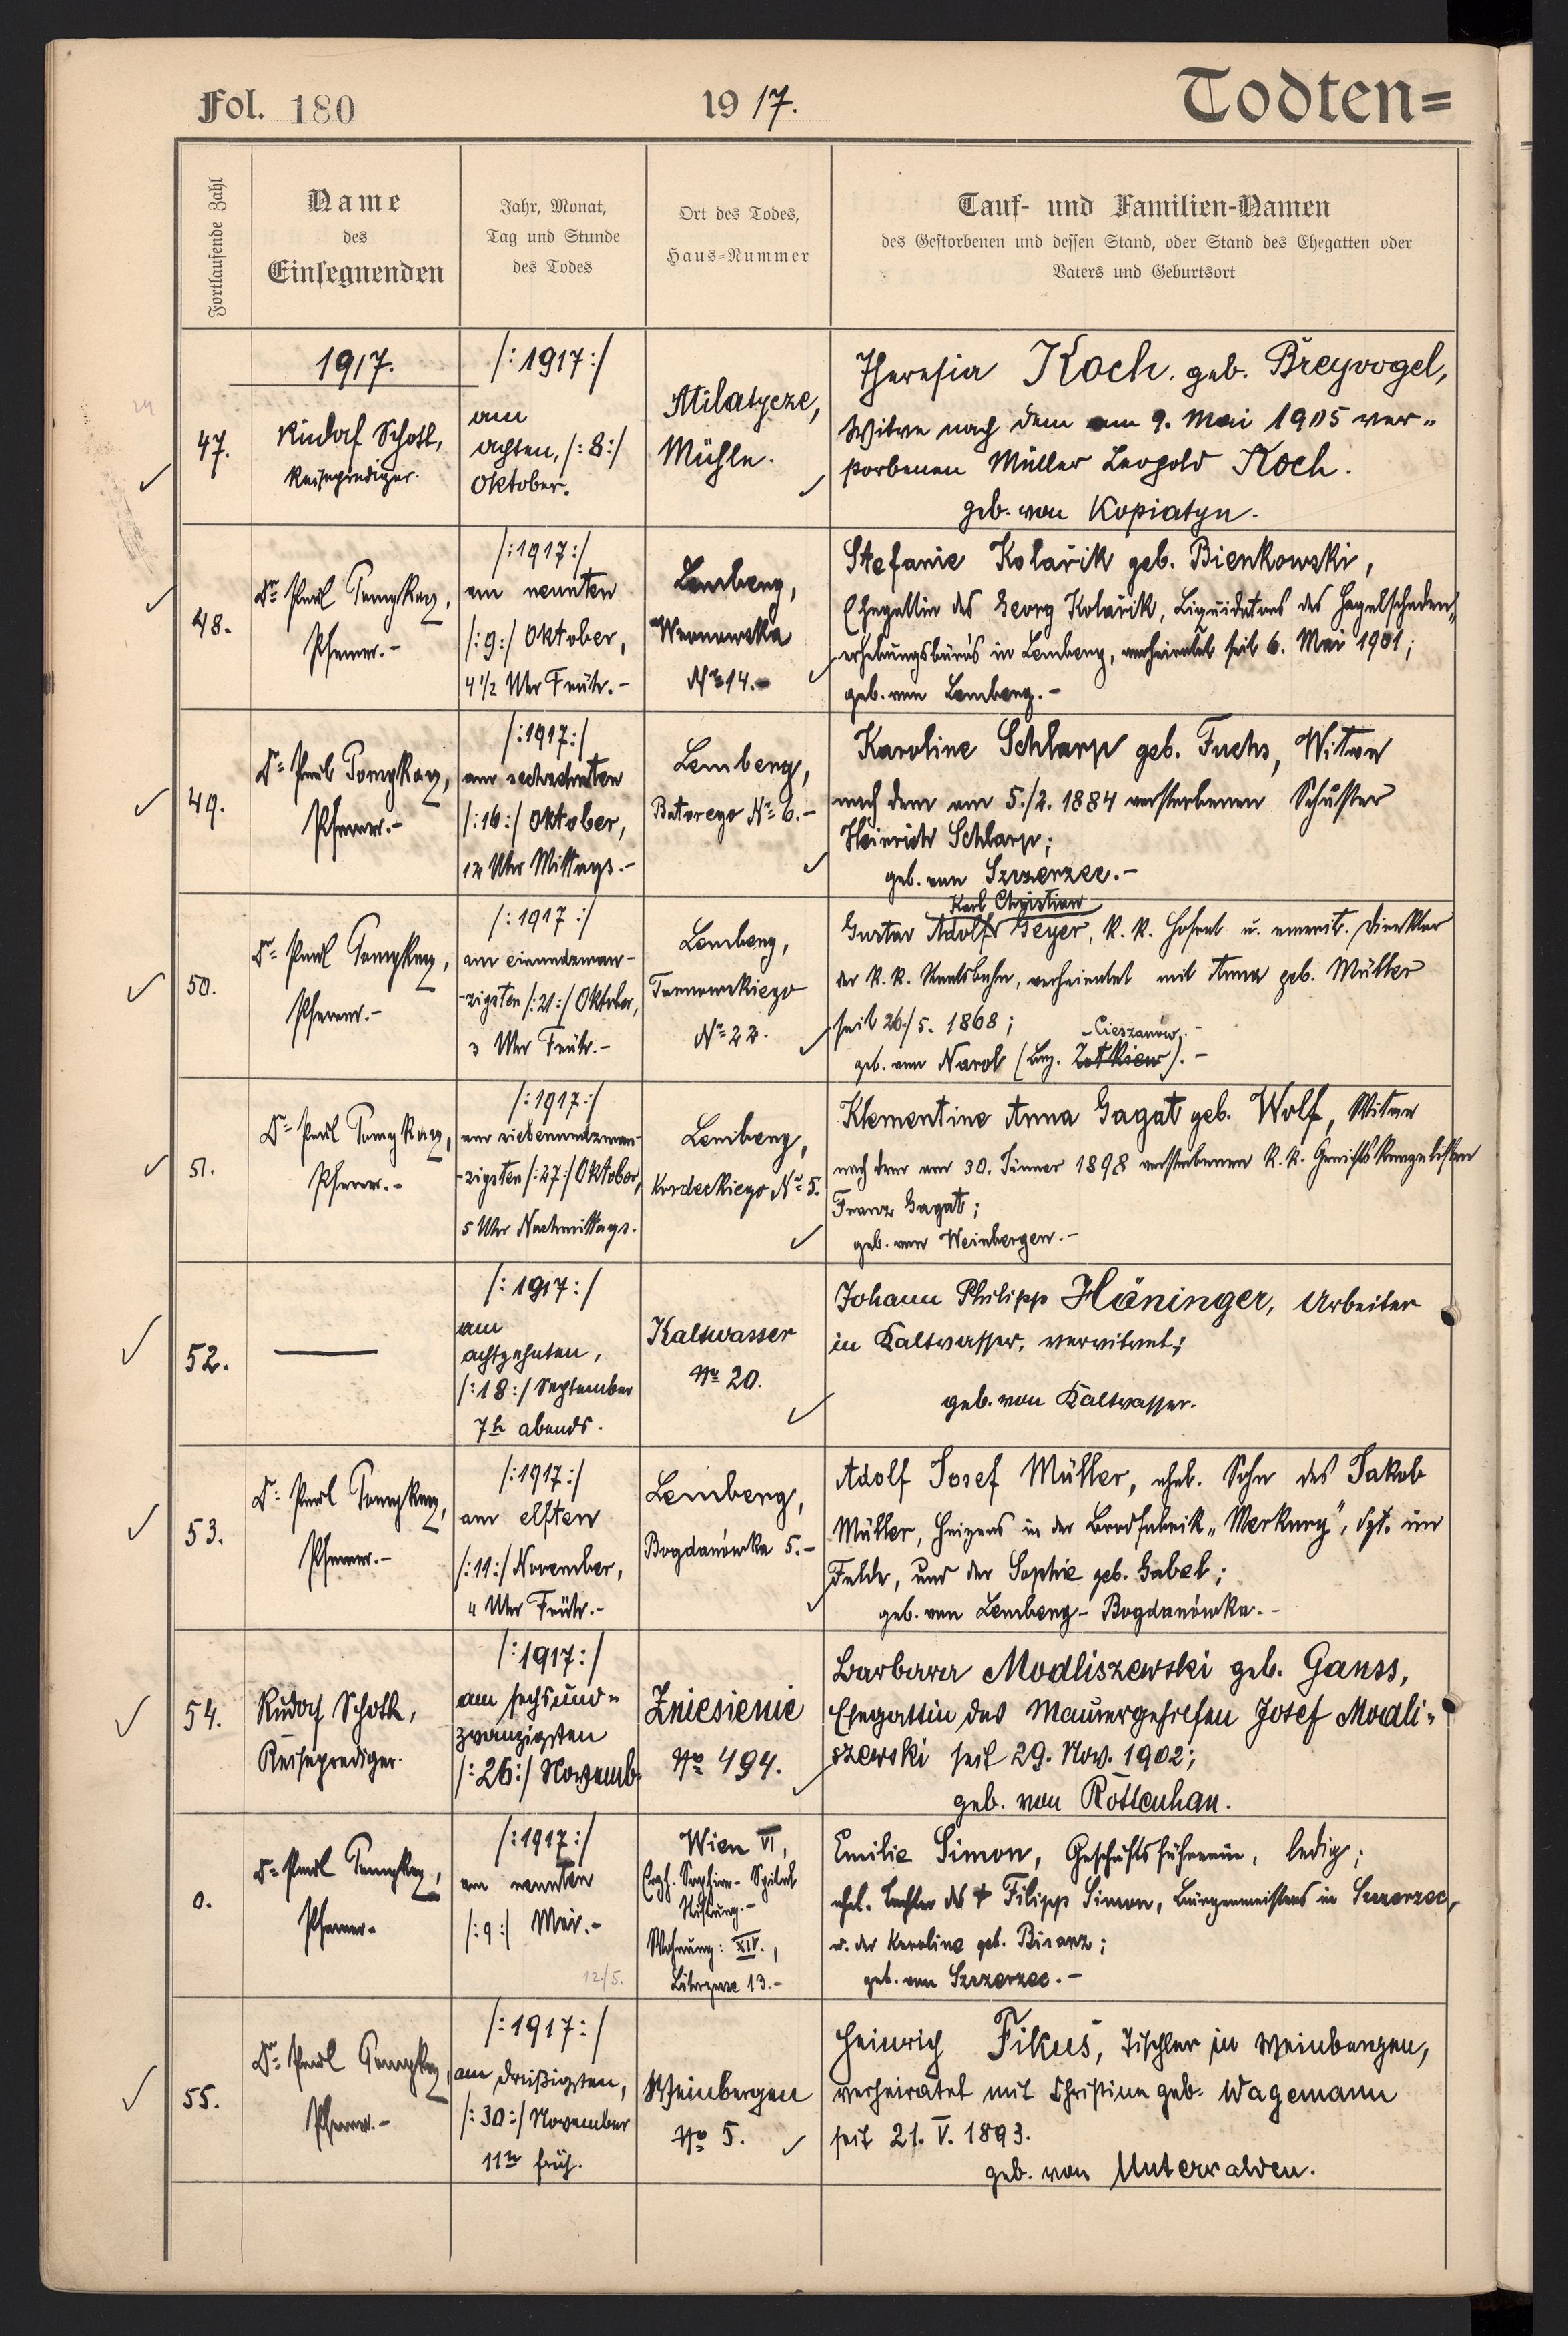 Fol. 180
1917.
Todten=
Fortlaufende Zahl
Name
des
Einsegnenden
Jahr, Monat,
Tag und Stunde
des Todes
Ort des Todes,
Haus-Nummer
Tauf- und Familien-Namen
des Gestorbenen und dessen Stand, oder Stand des Ehegatten oder
Vaters und Geburtsort
47.
1917.
Rudolf Schoth,
Reiseprediger.
/:1917:/
am
achten, /:8:/
Oktober.
Milatycze,
Mühle.
Theresia Koch, geb. Breyvogel,
Witwe nach dem am 9. Mai 1905 ver-
storbenen Müller Leopold Koch.
geb. von Kopiatyn.
48.
Dr. Paul
Pfarrer.-
/:1917:/
am neunten
/:9:/ Oktober,
4 1/2 Uhr Früh.-
Lemberg,
Wronowska
No 14.-
Stefanie Kolařik geb. Bienkowski,
Ehegattin des Georg Kolařik, Liquidators des Hagelschaden-
erhebungsbüro's in Lemberg, verheiratet seit 6. Mai 1901;
geb. von Lemberg.-
49.
Dr. Paul
Pfarrer.-
/:1917:/
am sechzehnten
/:16:/ Oktober,
12 Uhr Mittags.-
Lemberg,
Batorego No 6.-
Karoline Schlarp geb. Fuchs, Witwe
nach dem am 5./2. 1884 verstorbenen Schuster
Heinrich Schlarp;
geb. von Szczerzec.-
50.
Dr. Paul
Pfarrer.-
/:1917:/
am einundzwan-
-zigsten /:21:/ Oktober,
3 Uhr Früh.-
Lemberg,
Tarnowskiego
No 22.
Karl Christian
Gustav Adolf Geyer, k. k. Hofrat u. emerit. Direktor
der k. k. Staatsbahn, verheiratet mit Anna geb. Müller
seit 26./5. 1868;
-Cieszanów.-
geb. von Narol (Bez. Żołkiew).-
51.
Dr. Paul
Pfarrer.-
/:1917:/
am siebenundzwan-
-zigsten /:27:/ Oktober,
5 Uhr Nachmittags.
Lemberg,
Kordeckiego No 5.
Klementine Anna Gagat geb. Wolf, Witwe
nach dem am 30. Jänner 1898 verstorbenen k. k. Gerichtskanzelisten
Franz Gagat;
geb. von Weinbergen.-
52.
/:1917:/
am
achtzehnten,
/:18:/ September
7h abends.
Kaltwasser
No 20.
Johann Philipp Höninger, Arbeiter
in Kaltwasser, verwitwet;
geb. von Kaltwasser.
53.
Dr. Paul
Pfarrer.-
/:1917:/
am elften
/:11:/ November,
4 Uhr Früh.-
Lemberg,
Bogdanówka 5.-
Adolf Josef Müller, ehel. Sohn des Jakob
Müller, Heizers in der Brodfabrik "Merkury", dzt. im
Felde, und der Sophie geb. Gabel;
geb. von Lemberg-Bogdanówka.-
54.
Rudolf Schoth,
Reiseprediger.
/:1917:/
am sechsund-
zwanzigsten
/:26:/ Novemb.
Zniesienie
No 494.
Barbara Modliszewski geb. Ganss,
Ehegattin des Maurergehilfen Josef Modli-
szewski seit 29. Nov. 1902;
geb. von Rottenhan.
0.
Dr. Paul
Pfarrer-
/:1917:/
am neunten
/:9:/ Mai.-
12/5.
Wien VI,
Erzh. Sophien-Spital
Stiftung.-
Wohnung: XIV.,
13.-
Emilie Simon, Geschäftsführerin, ledig;
ehel. Tochter des + Filipp Simon, Bürgermeisters in Szczerzec,
u. der Karoline geb. Bisanz;
geb. von Szczerzec.-
55.
Dr. Paul
Pfarrer.-
/:1917:/
am dreißigsten,
/:30:/ November
11h früh.
Weinbergen
No 5.
Heinrich Fikus, Tischler in Weinbergen,
verheiratet mit Christine geb. Wagemann
seit 21. V. 1893.
geb. von Unterwalden.